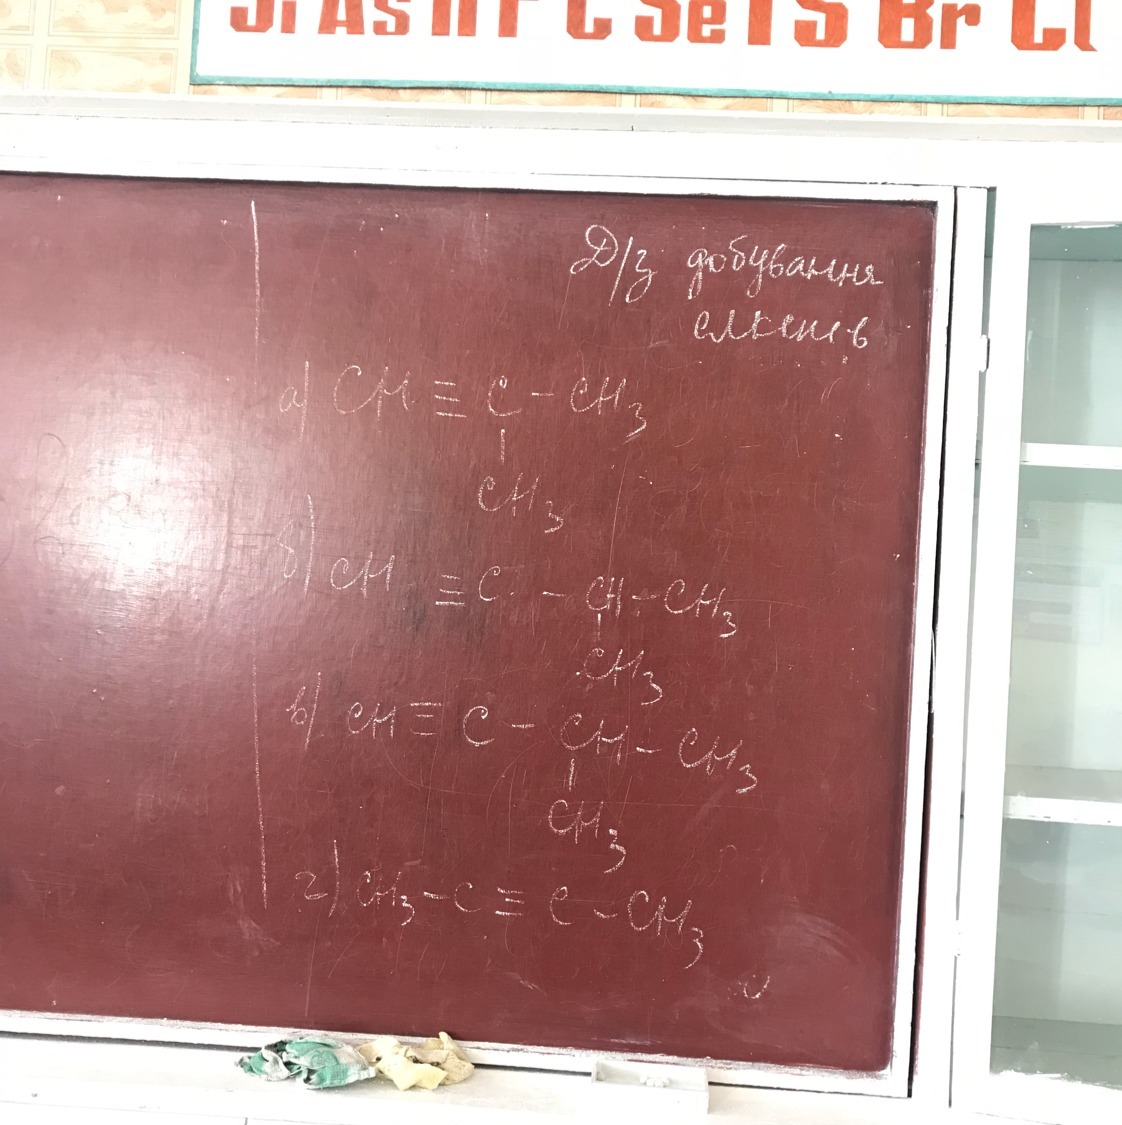 Si As H P C Se I S Br Cl
Д/з добування
алкенів
а) CH ≡ C - CH3
CH3
б) CH ≡ C - CH - CH3
CH3
в) CH ≡ C - CH - CH3
CH3
г) CH3 - C ≡ C - CH3